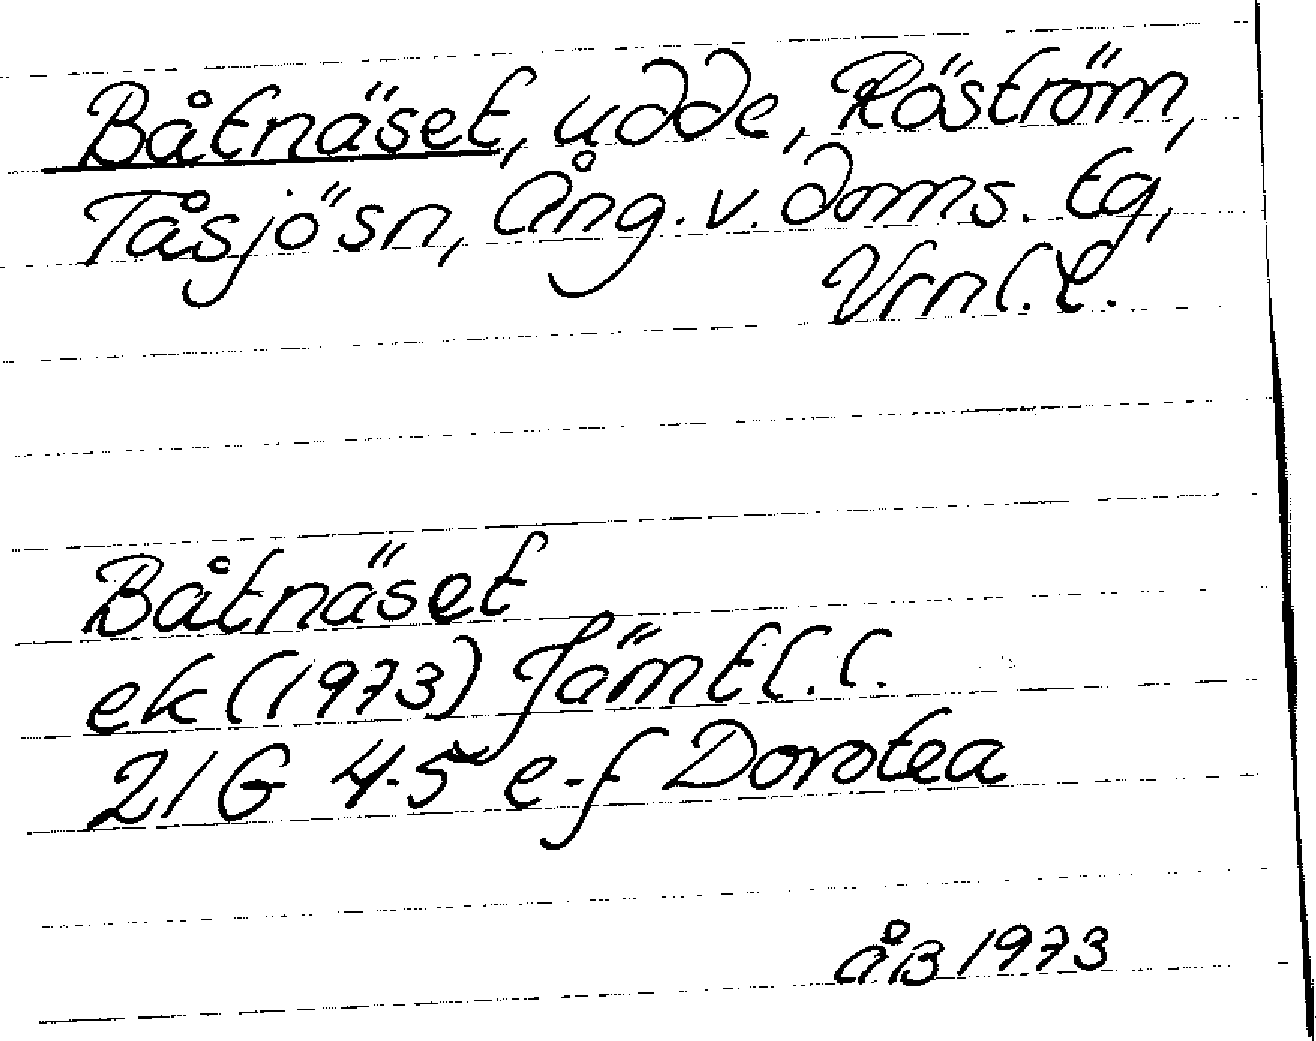 Båtnäset, udde, Röström,
Tåsjö sn, Ång. v. doms. tg,
Vrnl. l.
Båtnäset
ek (1973) Jämtl. l.
21G 4-5 e-f Dorotea
åB 1973